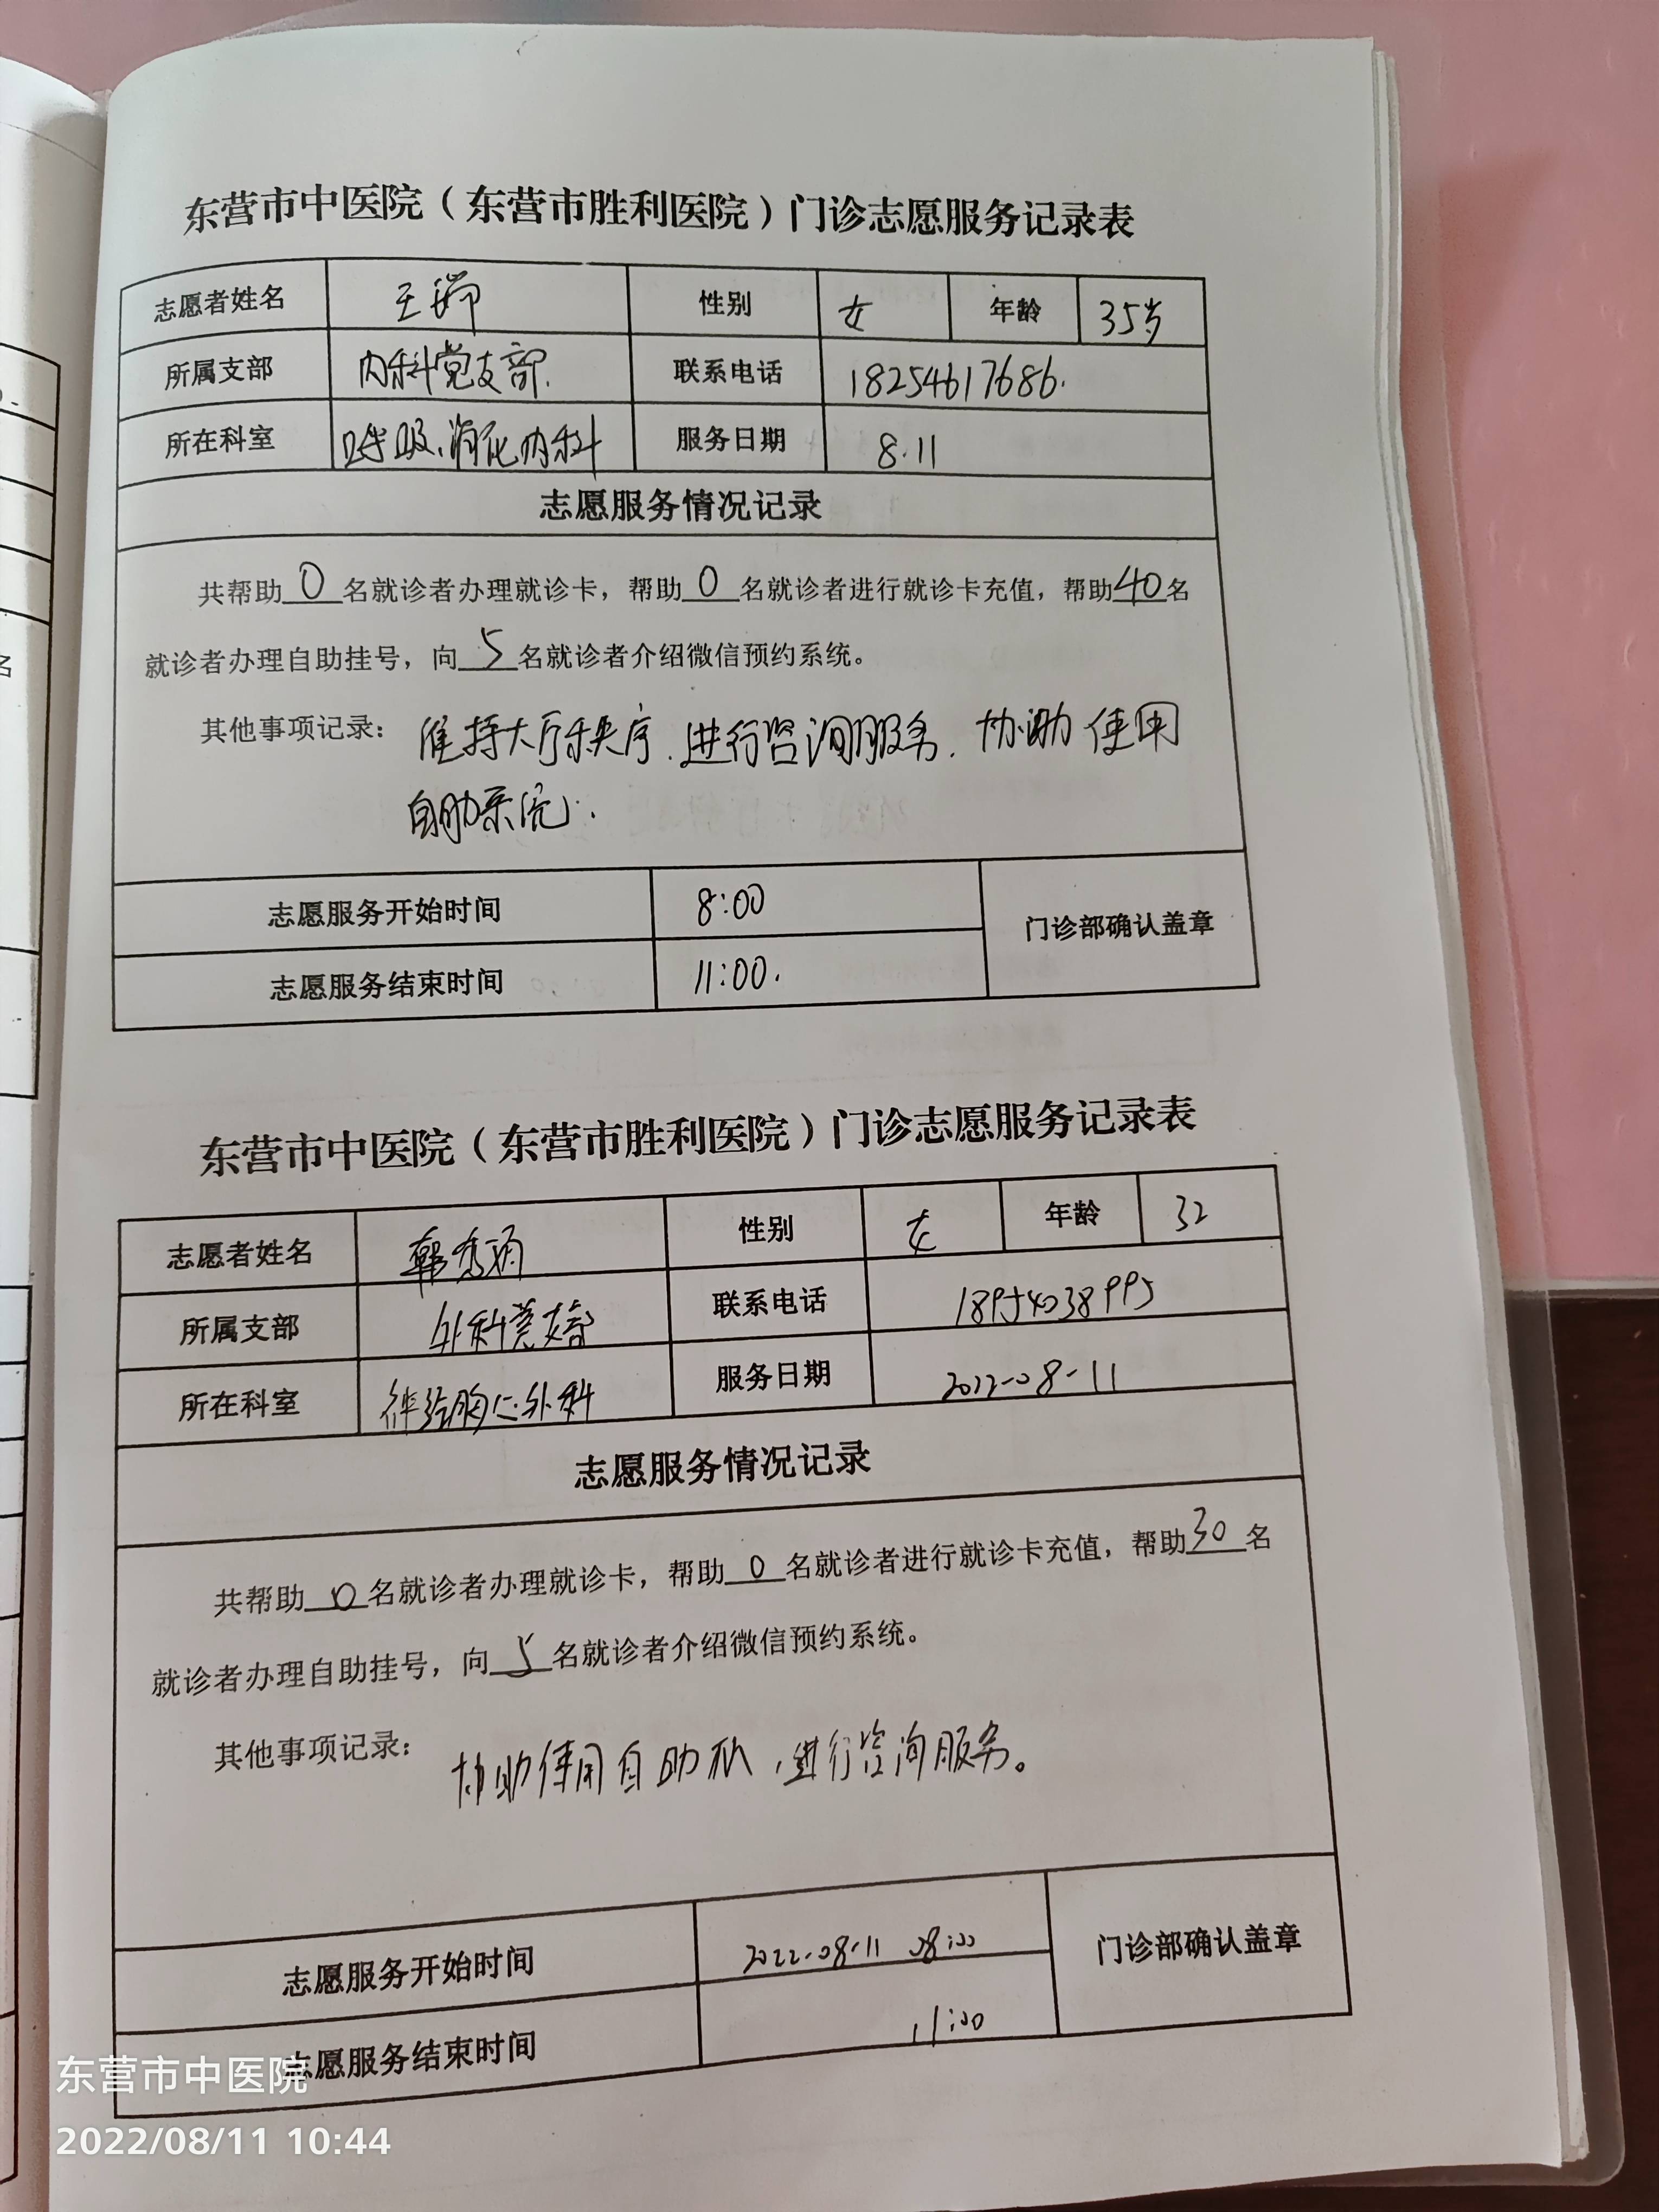 东营市中医院（东营市胜利医院）门诊志愿服务记录表
志愿者姓名 王 性别 女 年龄 35岁
所属支部 内科党支部. 联系电话 18254617686.
所在科室 呼吸、消化内科 服务日期 8.11
志愿服务情况记录
共帮助0名就诊者办理就诊卡，帮助0名就诊者进行就诊卡充值，帮助40名
就诊者办理自助挂号，向5名就诊者介绍微信预约系统。
其他事项记录： 维持大厅秩序.进行咨询服务.协助使用
自助系统.
志愿服务开始时间 8:00 门诊部确认盖章
志愿服务结束时间 11:00.
东营市中医院（东营市胜利医院）门诊志愿服务记录表
志愿者姓名 韩秀 性别 女 年龄 32
所属支部 外科党支部 联系电话 18954038995
所在科室 神经胸心外科 服务日期 2022-08-11
志愿服务情况记录
共帮助0名就诊者办理就诊卡，帮助0名就诊者进行就诊卡充值，帮助30名
就诊者办理自助挂号，向5名就诊者介绍微信预约系统。
其他事项记录： 协助使用自助机，进行咨询服务。
志愿服务开始时间 2022-08-11 08:00 门诊部确认盖章
志愿服务结束时间 11:00
东营市中医院
2022/08/11 10:44